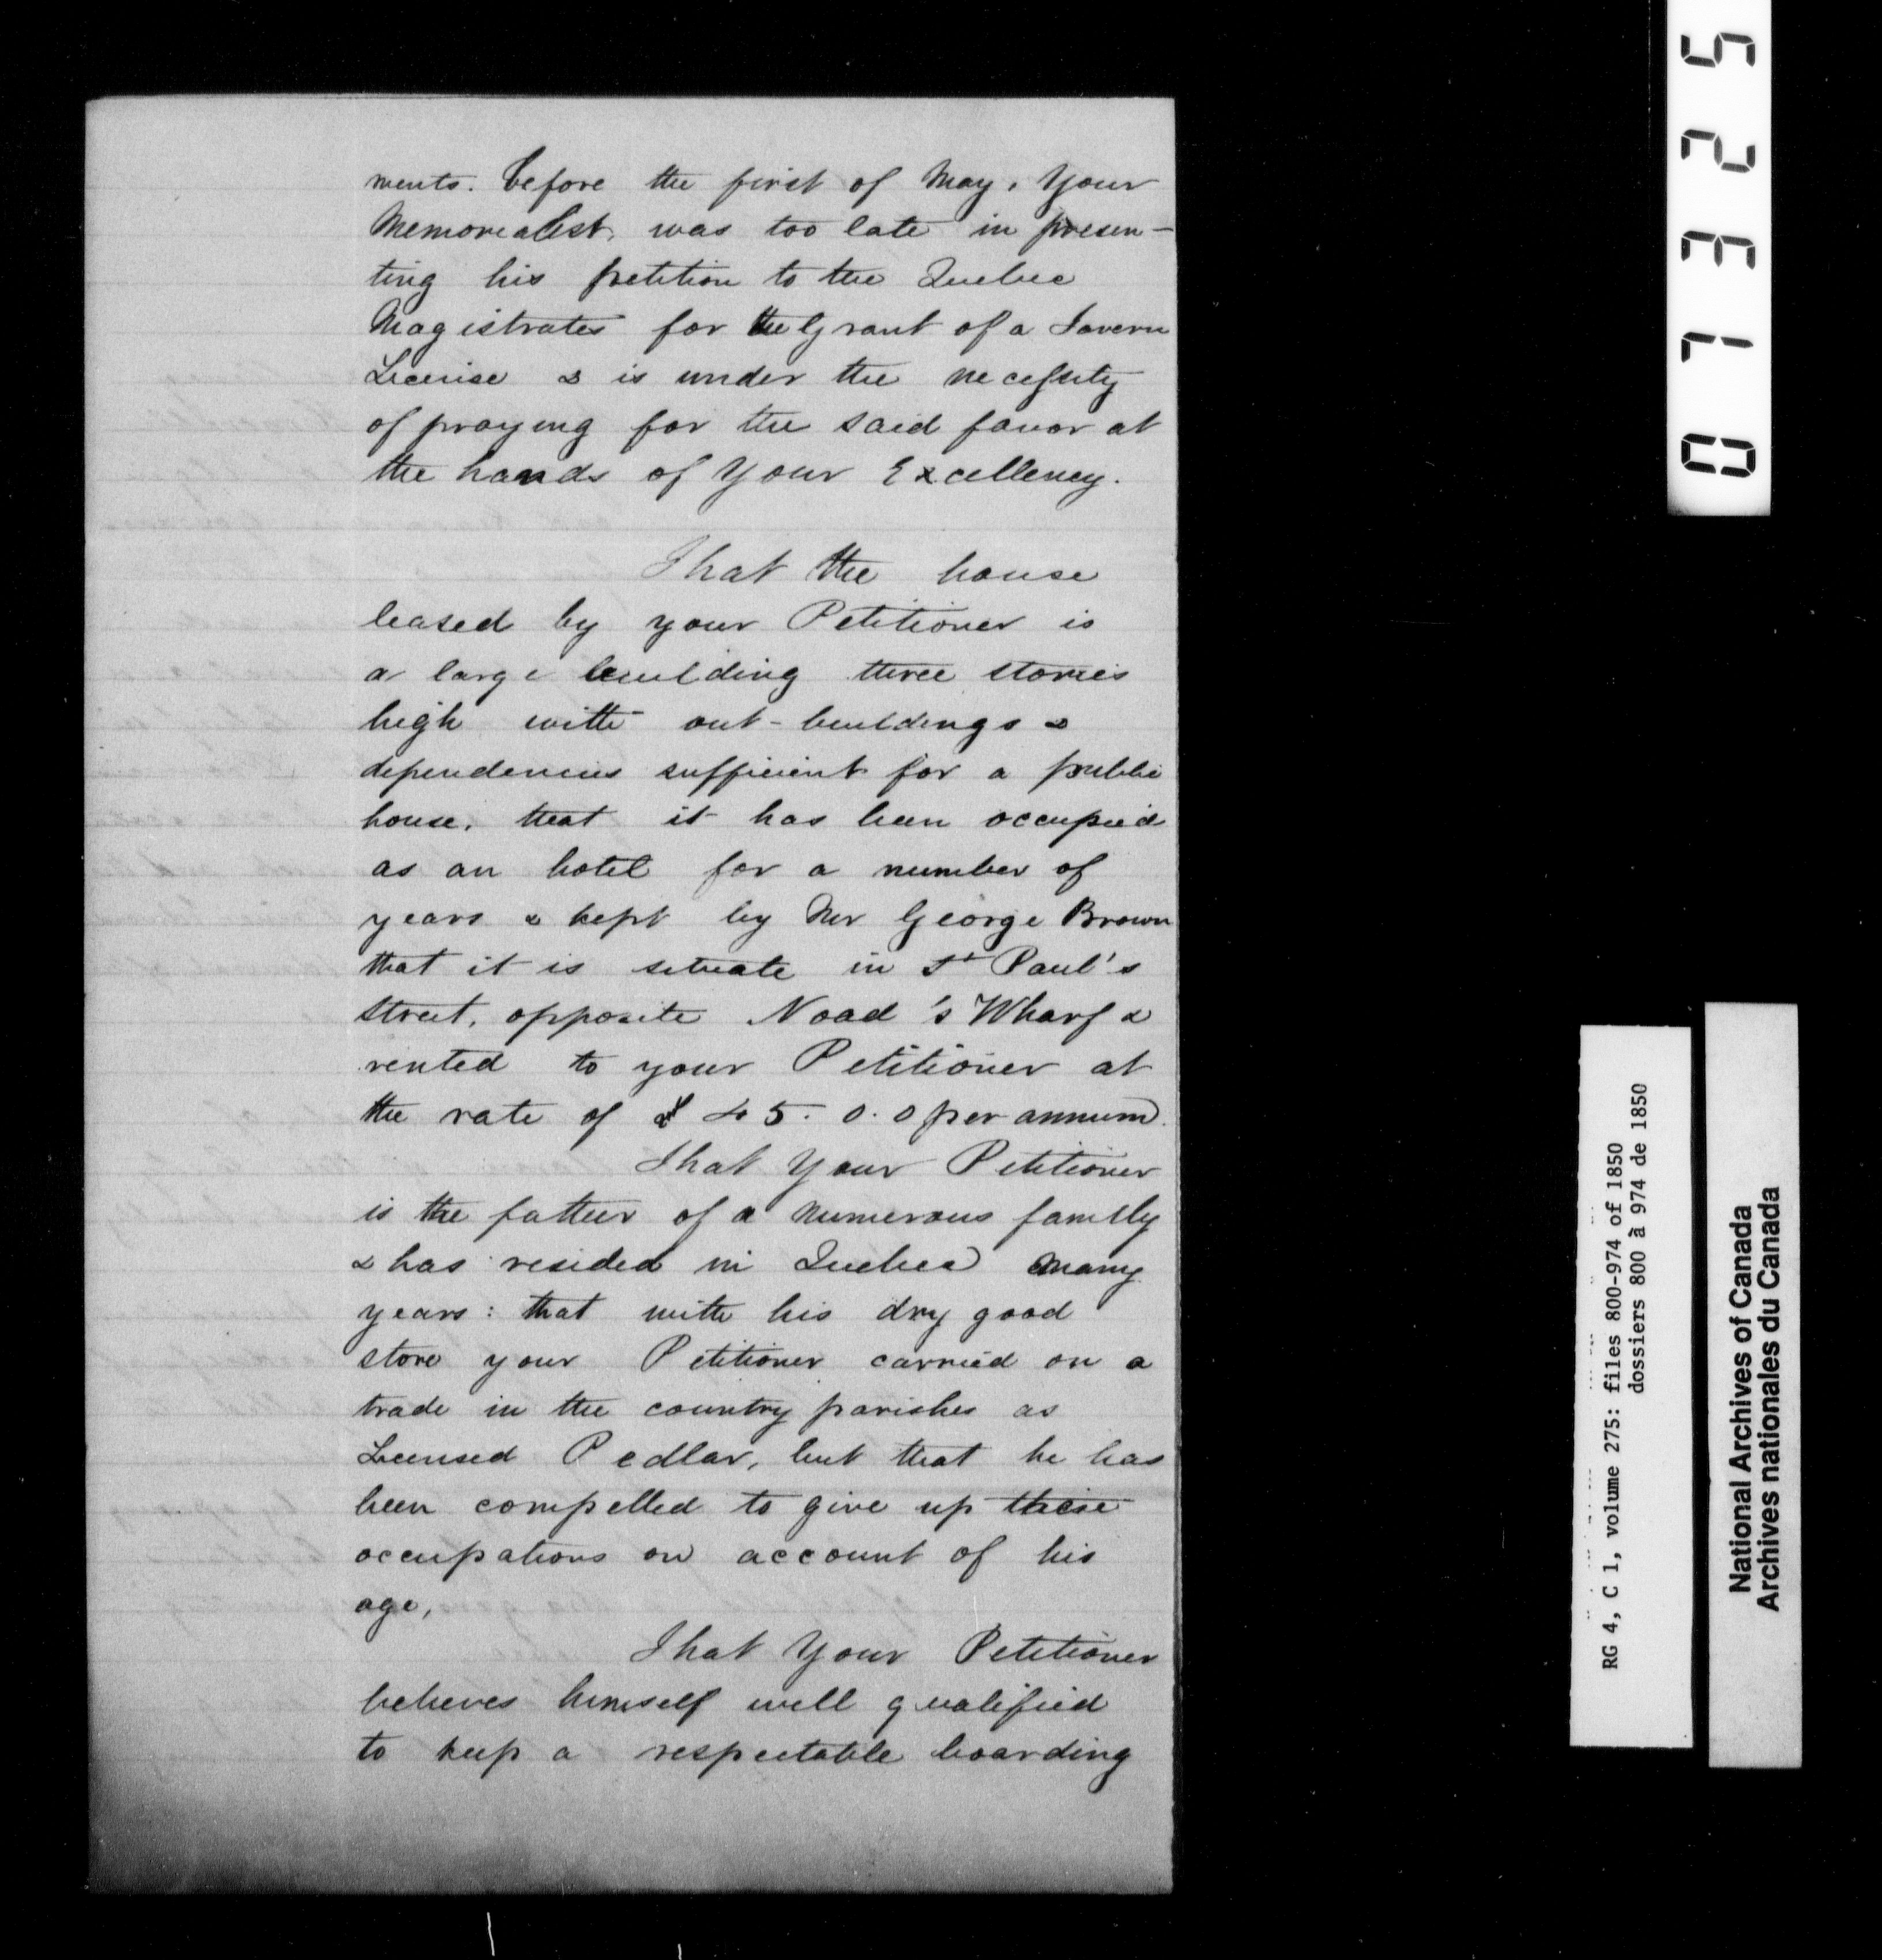 ments. before the first of May, Your
Memorialist, was too late in presen-
ting his petition to the Quebec
Magistrates for the Grant of a Tavern
License & is under the necessity
of praying for the said favor at
the hands of Your Excellency.
That the house
leased by your Petitioner is
a large building three stories
high with out-buildings &
dependencies sufficient for a public
house, that it has been occupied
as an hotel for a number of
years & kept by Mr George Brown
that it is situate in St Paul's
Street, opposite Noad's Wharf &
rented to your Petitioner at
the rate of £45.0.0 per annum.
That Your Petitioner
is the father of a numerous family
& has resided in Quebec many
years: that with his dry good
store your Petitioner carried on a
trade in the country parishes as
Licensed Pedlar, but that he has
been compelled to give up these
occupations on account of his
age,
That Your Petitioner
believes himself well qualified
to keep a respectable boarding
07325
RG 4, C 1, volume 275: files 800-974 of 1850
dossiers 800 à 974 de 1850
National Archives of Canada
Archives nationales du Canada